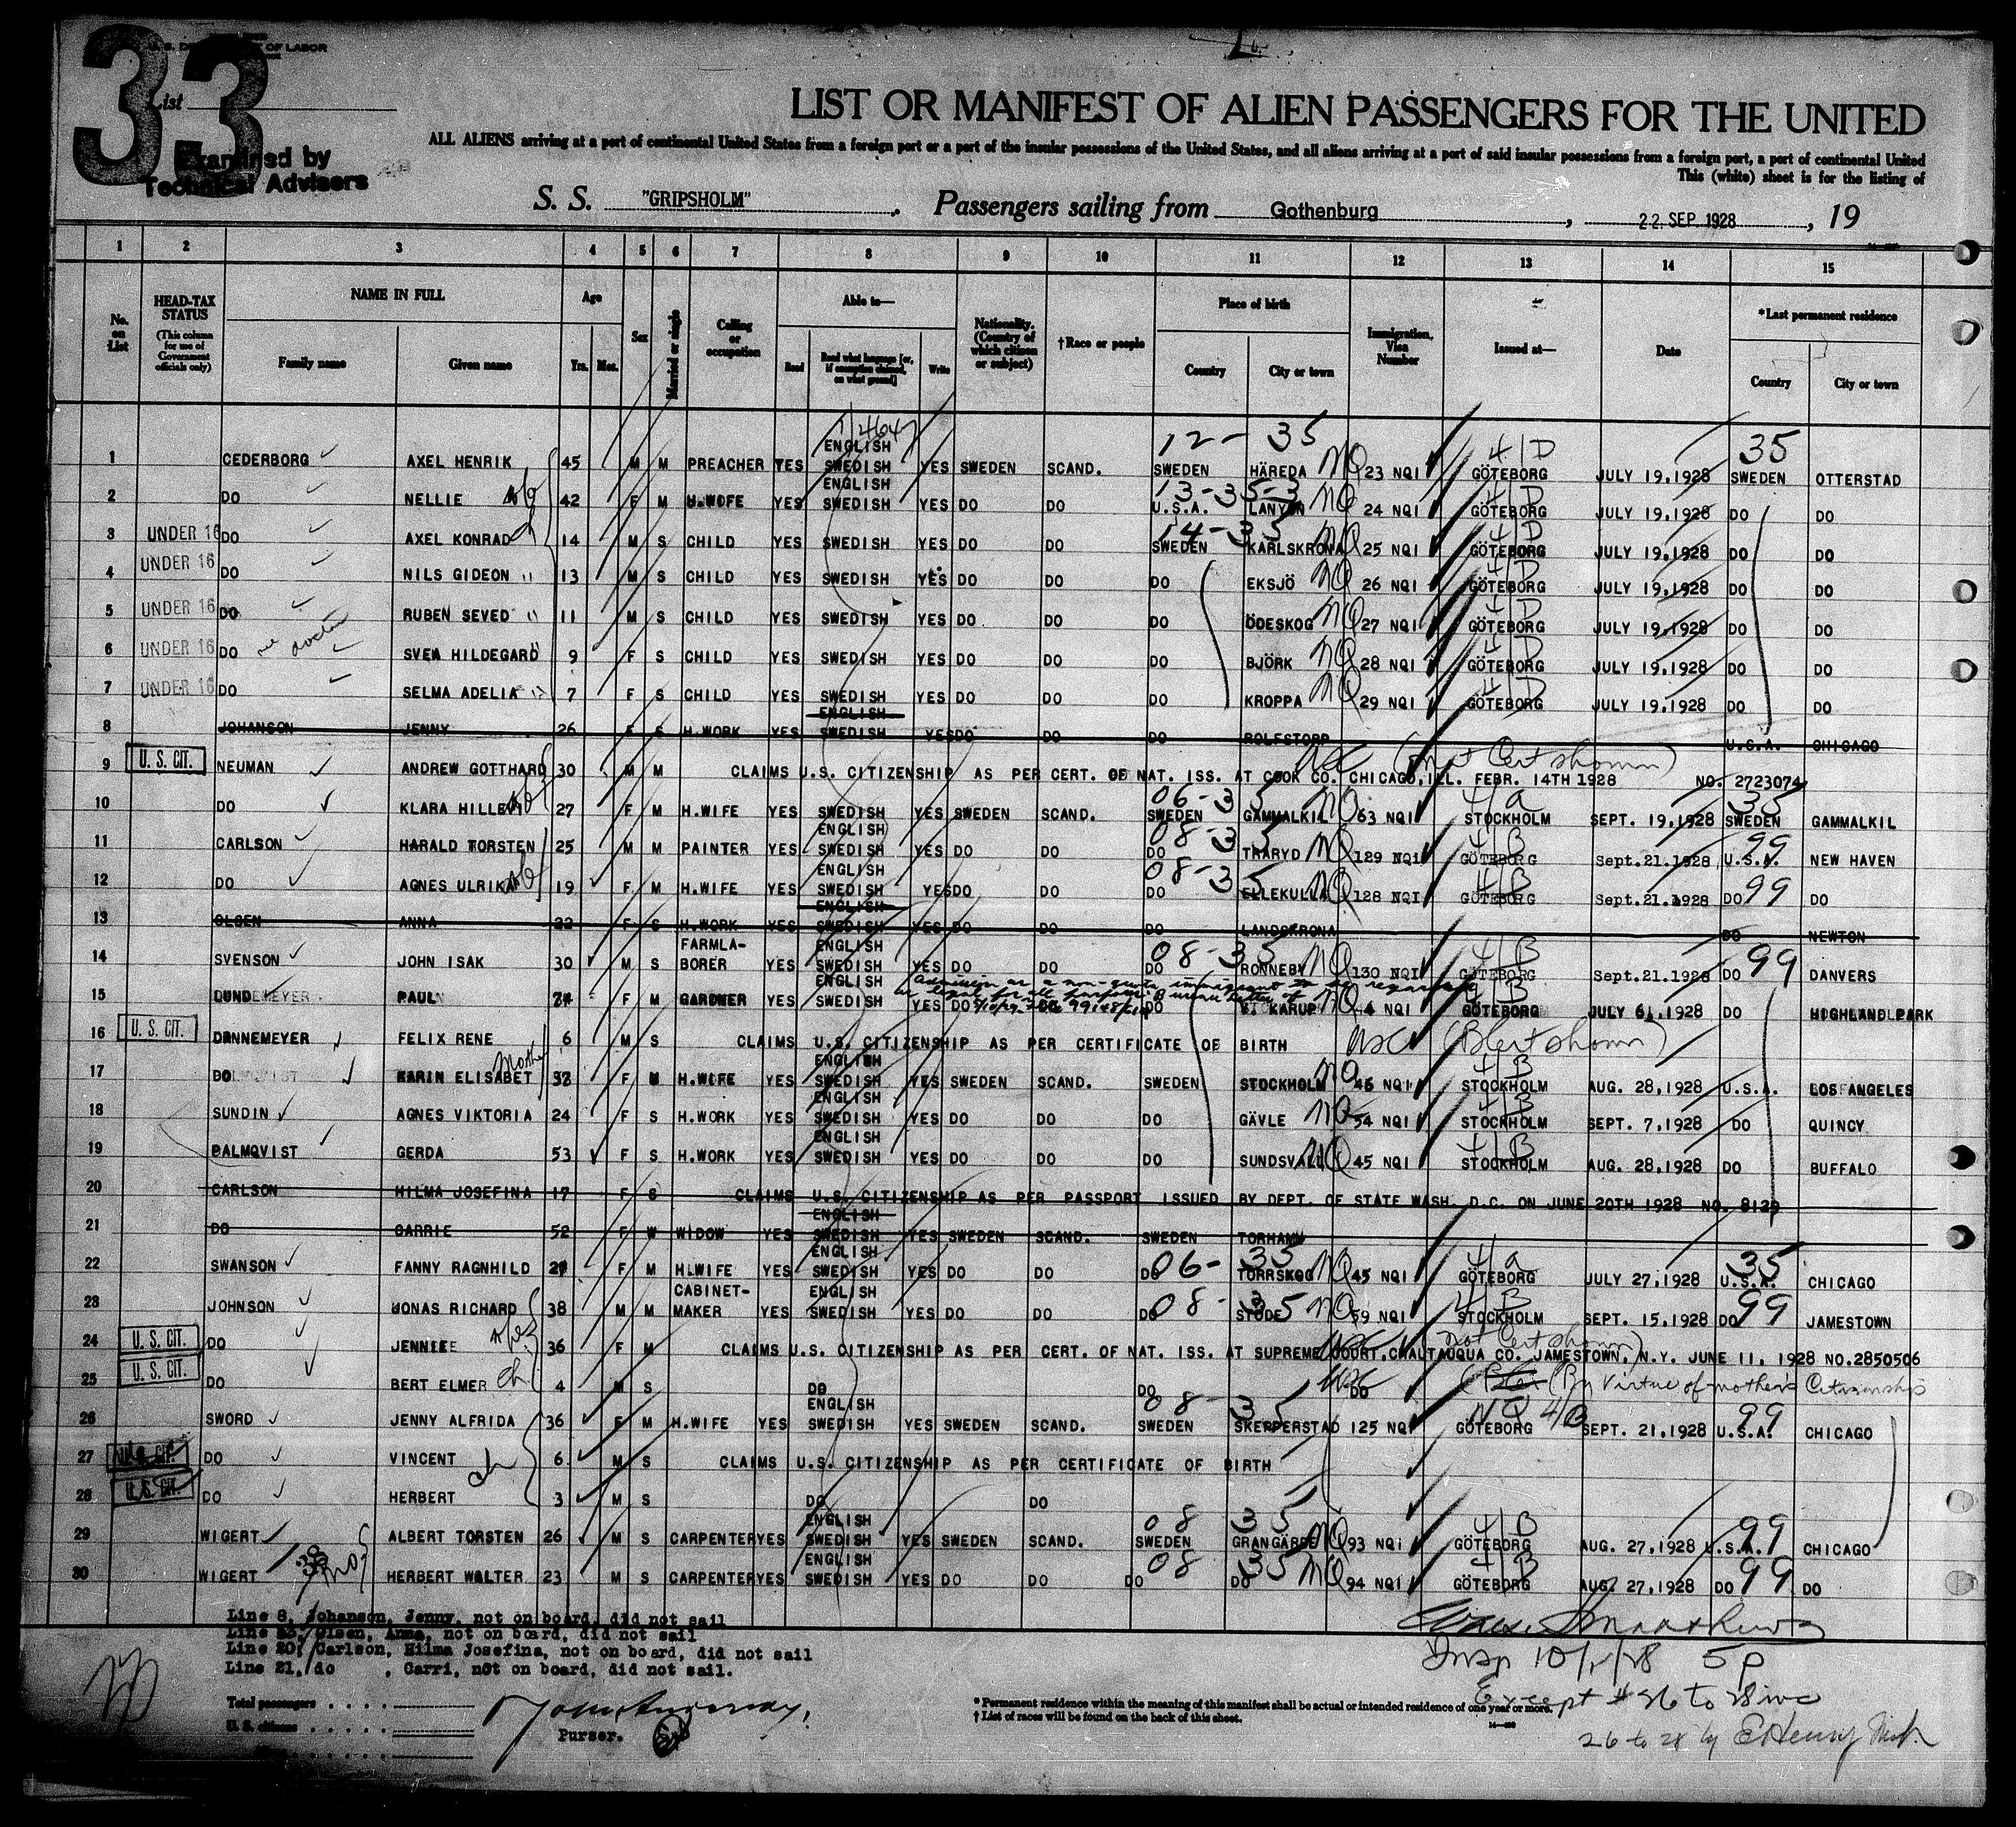 33
U. S. DEPARTMENT OF LABOR
List
Examined by
Technical Advisers
LIST OR MANIFEST OF ALIEN PASSENGERS FOR THE UNITED
ALL ALIENS arriving at a port of continental United States from a foreign port or a part of the insular possessions of the United States, and all aliens arriving at a port of said insular possessions from a foreign port, a part of continental United
This (white) sheet is for the listing of
S. S. "GRIPSHOLM" Passengers sailing from Gothenburg, 22 SEP. 1928, 19
1 2 3 4 5 6 7 8 9 10 11 12 13 14 15
No. on List
HEAD-TAX STATUS (This column for use of Government officials only)
NAME IN FULL Family name Given name
Age Yrs. Mos.
Sex
Married or single
Calling or occupation
Able to— Read Read what language [or, if exemption claimed, on what ground] Write
Nationality. (Country of which citizen or subject)
†Race or people
Place of birth Country City or town
Immigration, Visa Number
Issued at—
Date
*Last permanent residence Country City or town
12 - 35 4/D 35
1 CEDERBORG AXEL HENRIK 45 M M PREACHER YES ENGLISH SWEDISH YES SWEDEN SCAND. SWEDEN HÄREDA NQ 23 NQI GÖTEBORG JULY 19,1928 SWEDEN OTTERSTAD
13-35-3 4/D
2 DO NELLIE 42 F M H.WIFE YES ENGLISH SWEDISH YES DO DO U.S.A. NQ 24 NQI GÖTEBORG JULY 19,1928 DO DO
14-35 4/D
3 UNDER 16 DO AXEL KONRAD 14 M S CHILD YES SWEDISH YES DO DO SWEDEN KARLSKRONA NQ 25 NQI GÖTEBORG JULY 19,1928 DO DO
4 UNDER 16 DO NILS GIDEON " 13 M S CHILD YES SWEDISH YES DO DO DO EKSJÖ NQ 26 NQI 4/D GÖTEBORG JULY 19,1928 DO DO
5 UNDER 16 DO RUBEN SEVED " 11 M S CHILD YES SWEDISH YES DO DO DO ÖDESKOG NQ 27 NQI 4/D GÖTEBORG JULY 19,1928 DO DO
6 UNDER 16 DO SVEA HILDEGARD 9 F S CHILD YES SWEDISH YES DO DO DO BJÖRK NQ 28 NQI 4/D GÖTEBORG JULY 19,1928 DO DO
7 UNDER 16 DO SELMA ADELIA " 7 F S CHILD YES SWEDISH YES DO DO DO KROPPA NQ 29 NQI 4/D GÖTEBORG JULY 19,1928 DO DO
8 JOHANSON JENNY 26 F S H.WORK YES ENGLISH SWEDISH YES DO DO DO ROLFSTORP U.S.A. CHICAGO
9 U.S. CIT. NEUMAN ANDREW GOTTHARD 30 M M CLAIMS U.S. CITIZENSHIP AS PER CERT. OF NAT. ISS. AT COOK CO. CHICAGO, ILL. FEBR. 14TH 1928 NO. 2723074
USC (Nat Cert shown)
06-35 4/a 35
10 DO KLARA 27 F M H.WIFE YES SWEDISH YES SWEDEN SCAND. SWEDEN GAMMALKIL NQ 63 NQI STOCKHOLM SEPT. 19,1928 SWEDEN GAMMALKIL
08-35 4/B 99
11 CARLSON HARALD TORSTEN 25 M M PAINTER YES ENGLISH SWEDISH YES DO DO DO TRARYD NQ 129 NQI GÖTEBORG Sept.21.1928 U.S.A. NEW HAVEN
08-35 4/B 99
12 DO AGNES ULRIKA 19 F M H.WIFE YES ENGLISH SWEDISH YES DO DO DO ELLEKULLA NQ 128 NQI GÖTEBORG Sept.21.1928 DO DO
13 OLSEN ANNA 22 F S H.WORK YES ENGLISH SWEDISH YES DO DO DO LANDSKRONA DO NEWTON
08-35 4/B 99
14 SVENSON JOHN ISAK 30 M S FARMLA-BORER YES ENGLISH SWEDISH YES DO DO DO RONNEBY NQ 130 NQI GÖTEBORG Sept.21.1928 DO DANVERS
Admission as a non-quota immigrant to be regarded
15 PAUL F M GARDNER YES ENGLISH SWEDISH YES DO DO DO KARUP NQ 4 NQI 4/B GÖTEBORG JULY 6,1928 DO HIGHLAND PARK
16 U.S. CIT. DANNEMEYER FELIX RENE 6 M S CLAIMS U.S. CITIZENSHIP AS PER CERTIFICATE OF BIRTH USC (B Cert shown)
17 DO KARIN ELISABET Mother 32 F M H.WIFE YES ENGLISH SWEDISH YES SWEDEN SCAND. SWEDEN STOCKHOLM NQ 46 NQI 4/B STOCKHOLM AUG. 28,1928 U.S.A. LOS ANGELES
18 SUNDIN AGNES VIKTORIA 24 F S H.WORK YES ENGLISH SWEDISH YES DO DO DO GÄVLE NQ 54 NQI 4/B STOCKHOLM SEPT. 7,1928 DO QUINCY
19 PALMQVIST GERDA 53 F S H.WORK YES ENGLISH SWEDISH YES DO DO DO SUNDSVALL NQ 45 NQI 4/B STOCKHOLM AUG. 28,1928 DO BUFFALO
20 CARLSON HILMA JOSEFINA 17 F S CLAIMS U.S. CITIZENSHIP AS PER PASSPORT ISSUED BY DEPT. OF STATE WASH. D.C. ON JUNE 20TH 1928 NO. 8129
21 DO CARRIE 52 F W WIDOW YES ENGLISH SWEDISH YES SWEDEN SCAND. SWEDEN TORHAMN
06-35 4/a 35
22 SWANSON FANNY RAGNHILD F M H.WIFE YES ENGLISH SWEDISH YES DO DO DO TORRSKOG NQ 45 NQI GÖTEBORG JULY 27,1928 U.S.A. CHICAGO
08-35 4/B 99
23 JOHNSON JONAS RICHARD 38 M M CABINET-MAKER YES ENGLISH SWEDISH YES DO DO DO STÖDE NQ 59 NQI STOCKHOLM SEPT. 15,1928 DO JAMESTOWN
USC (Nat Cert shown)
24 U.S. CIT. DO JENNIE 36 F M CLAIMS U.S. CITIZENSHIP AS PER CERT. OF NAT. ISS. AT SUPREME COURT, CHAUTAUQUA CO. JAMESTOWN, N.Y. JUNE 11, 1928 NO.2850506
25 U.S. CIT. DO BERT ELMER ch 4 M S DO DO DO USC (By Virtue of mother's Citizenship
08-35 NQ 4/B 99
26 SWORD JENNY ALFRIDA 36 F M H.WIFE YES ENGLISH SWEDISH YES SWEDEN SCAND. SWEDEN SKEPPERSTAD 125 NQI GÖTEBORG SEPT. 21,1928 U.S.A. CHICAGO
27 U.S. CIT. DO VINCENT ch 6 M S CLAIMS U.S. CITIZENSHIP AS PER CERTIFICATE OF BIRTH
28 U.S. CIT. DO HERBERT 3 M S DO DO
08 35 4/B 99
29 WIGERT ALBERT TORSTEN 26 M S CARPENTER YES ENGLISH SWEDISH YES SWEDEN SCAND. SWEDEN GRANGÄRDE NQ 93 NQI GÖTEBORG AUG. 27,1928 U.S.A. CHICAGO
08 35 4/B 99
30 WIGERT HERBERT WALTER 23 M S CARPENTER YES ENGLISH SWEDISH YES DO DO DO DO NQ 94 NQI GÖTEBORG AUG. 27,1928 DO DO
Line 8, Johanson, Jenny, not on board, did not sail
Line 13, Olsen, Anna, not on board, did not sail
Line 20, Carlson, Hilma Josefina, not on board, did not sail
Line 21, do , Carri, not on board, did not sail.
Insp 10/1/28 5 P
Except # 26 to 28 inc
26 to 28 by E Henry
Total passengers
U. S. citizens
Purser.
* Permanent residence within the meaning of this manifest shall be actual or intended residence of one year or more.
† List of races will be found on the back of this sheet.